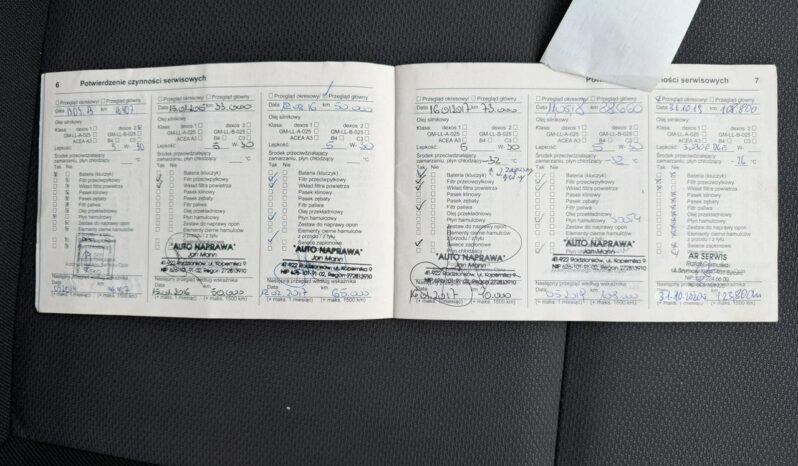 6 Potwierdzenie czynności serwisowych
Przegląd okresowy/ Przegląd główny
Data km
Olej silnikowy
Klasa: dexos 1 dexos 2
GM-LL-A-025 GM-LL-B-025
ACEA A3 B4 C3
Lepkość: 5 W- 30
Środek przeciwdziałający
zamarzaniu, płyn chłodzący °C
Tak Nie
Bateria (kluczyk)
Filtr przeciwpyłkowy
Wkład filtra powietrza
Pasek klinowy
Pasek zębaty
Filtr paliwa
Olej przekładniowy
Płyn hamulcowy
Zestaw do naprawy opon
Elementy cierne hamulców
z przodu / z tyłu
Świece zapłonowe
Następny przegląd według wskaźnika
Data km
(+ maks. 1 miesiąc) (+ maks. 1500 km)
Przegląd okresowy/ Przegląd główny
Data km 33.000
Olej silnikowy
Klasa: dexos 1 dexos 2
GM-LL-A-025 GM-LL-B-025
ACEA A3 B4 C3
Lepkość: 5 W- 30
Środek przeciwdziałający
zamarzaniu, płyn chłodzący °C
Tak Nie
Bateria (kluczyk)
Filtr przeciwpyłkowy
Wkład filtra powietrza
Pasek klinowy
Pasek zębaty
Filtr paliwa
Olej przekładniowy
Płyn hamulcowy
Zestaw do naprawy opon
Elementy cierne hamulców
z przodu / z tyłu
"AUTO NAPRAWA"
Jan Mann
41-922 Radzionków, ul. Kopernika 9
Następny przegląd według wskaźnika
Data km
50.000
(+ maks. 1 miesiąc) (+ maks. 1500 km)
Przegląd okresowy/ Przegląd główny
Data 12.02.16 km 50.000
Olej silnikowy
Klasa: dexos 1 dexos 2
GM-LL-A-025 GM-LL-B-025
ACEA A3 B4 C3
Lepkość: 5 W- 30
Środek przeciwdziałający
zamarzaniu, płyn chłodzący °C
Tak Nie
Bateria (kluczyk)
Filtr przeciwpyłkowy
Wkład filtra powietrza
Pasek klinowy
Pasek zębaty
Filtr paliwa
Olej przekładniowy
Płyn hamulcowy
Zestaw do naprawy opon
Elementy cierne hamulców
z przodu / z tyłu
Świece zapłonowe
"AUTO NAPRAWA"
Jan Mann
41-922 Radzionków, ul. Kopernika 9
Następny przegląd według wskaźnika
Data km
12.02.2017 65.000
(+ maks. 1 miesiąc) (+ maks. 1500 km)
ności serwisowych 7
Przegląd okresowy/ Przegląd główny
Data 16.01.2017 km 73.000
Olej silnikowy
Klasa: dexos 1 dexos 2
GM-LL-A-025 GM-LL-B-025
ACEA A3 B4 C3
Lepkość: 5 W- 30
Środek przeciwdziałający
zamarzaniu, płyn chłodzący -32 °C
Tak Nie
Bateria (kluczyk)
Filtr przeciwpyłkowy
Wkład filtra powietrza
Pasek klinowy
Pasek zębaty
Filtr paliwa
Olej przekładniowy
Płyn hamulcowy
Zestaw do naprawy opon
Elementy cierne hamulców
z przodu / z tyłu
Świece zapłonowe
"AUTO NAPRAWA"
Jan Mann
41-922 Radzionków, ul. Kopernika 9
Data km
90.000
(+ maks. 1 miesiąc) (+ maks. 1500 km)
Przegląd okresowy/ Przegląd główny
Data km 88660
Olej silnikowy
Klasa: dexos 1 dexos 2
GM-LL-A-025 GM-LL-B-025
ACEA A3 B4 C3
Lepkość: 5 W- 30
Środek przeciwdziałający
zamarzaniu, płyn chłodzący -32 °C
Tak Nie
Bateria (kluczyk)
Filtr przeciwpyłkowy
Wkład filtra powietrza
Pasek klinowy
Pasek zębaty
Filtr paliwa
Olej przekładniowy
Płyn hamulcowy
Zestaw do naprawy opon
Elementy cierne hamulców
z przodu / z tyłu
Świece zapłonowe
"AUTO NAPRAWA"
Jan Mann
41-922 Radzionków, ul. Kopernika 9
Następny przegląd według wskaźnika
Data km
(+ maks. 1 miesiąc) (+ maks. 1500 km)
Przegląd okresowy/ Przegląd główny
Data 31.10.19 km 108800
Olej silnikowy
Klasa: dexos 1 dexos 2
GM-LL-A-025 GM-LL-B-025
ACEA A3 B4 C3
Lepkość: W-
Środek przeciwdziałający
zamarzaniu, płyn chłodzący -26 °C
Tak Nie
Bateria (kluczyk)
Filtr przeciwpyłkowy
Wkład filtra powietrza
Pasek klinowy
Pasek zębaty
Filtr paliwa
Olej przekładniowy
Płyn hamulcowy
Zestaw do naprawy opon
Elementy cierne hamulców
z przodu / z tyłu
AR SERWIS
Następny przegląd według wskaźnika
Data km
31.10.2020 123800km
(+ maks. 1 miesiąc) (+ maks. 1500 km)